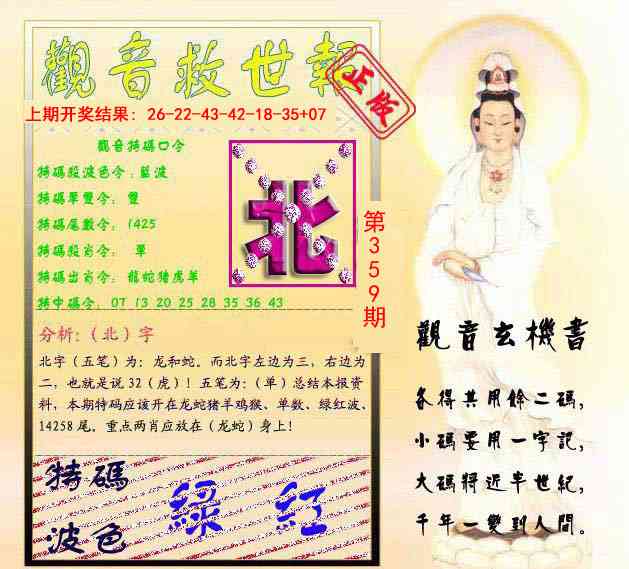 觀音救世報
正版
上期开奖结果：26-22-43-42-18-35+07
觀音特碼口令
特碼段波色令：藍波
特碼單雙令：雙
特碼尾數令：1425
特碼段肖令：單
特碼出肖令：龍蛇猪虎羊
特中碼令：07 13 20 25 28 35 36 43
北
第359期
分析：（北）字
北字（五笔）为：龙和蛇。而北字左边为三，右边为
二，也就是说32（虎）！五笔为：（单）总结本报资
料，本期特码应该开在龙蛇猪羊鸡猴、单数、绿红波、
14258尾。重点两肖应放在（龙蛇）身上！
特碼
波色
綠 紅
觀音玄機書
各得其用餘二碼，
小碼要用一字記，
大碼將近半世紀，
千年一變到人間。